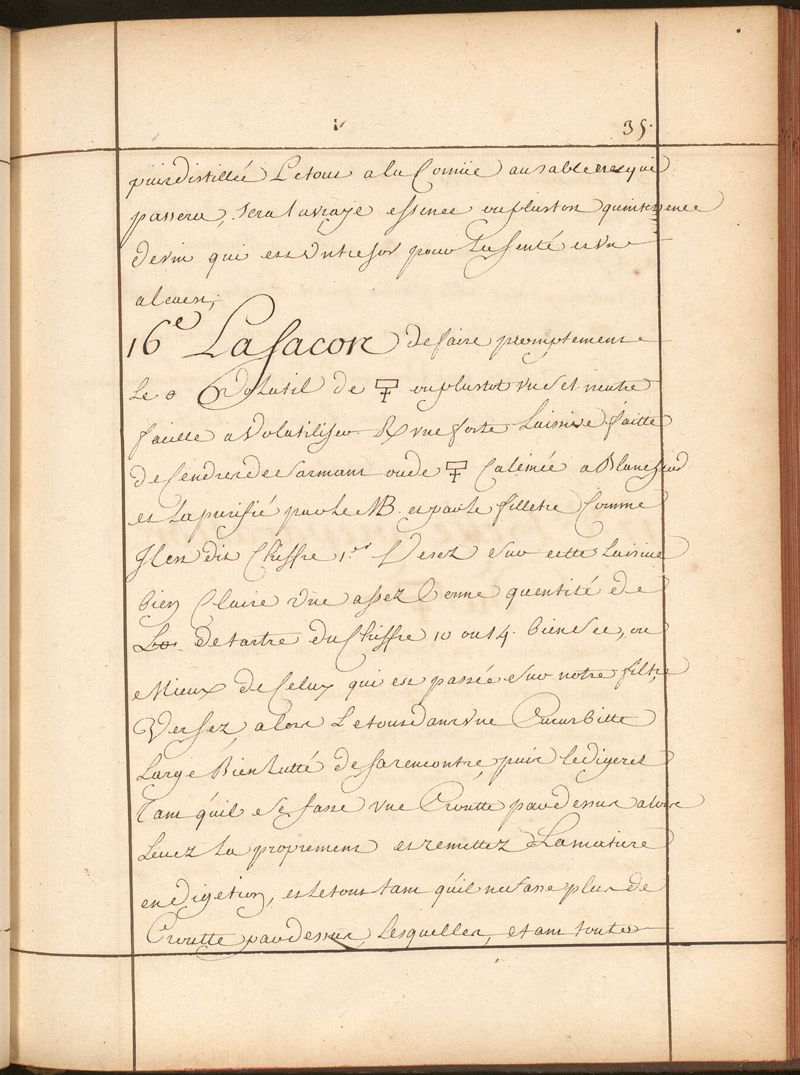 35.
puis distillée Le tout a la Cornüe au sable ce qui
passera, sera la vraye essence ou plustost quintessence
de vin qui est un tresor pour La senté et un
alcaest,
16e La facon de faire promptement
Le volatil de ou plustot un sel neutre
facille a volatiliser ℞ une forte Laissive faitte
de Cendres de sarmant ou de Calcinée a Blancheur
et La purifié par Le MB. et par le filletre Comme
Il est dit Chiffre 1.er Versez sur cette Laisive
bien Claire une assez bonne quentité de
de tartre du Chiffre 10 ou 14. bien sec, ou
Mieux de Celuy qui est passée sur notre filtre
Versez, alors Le tout dans une Cucurbitte
Large Bien Lutté de sa rencontre, puis le digerez
Tant qu'il se fasse une Croutte par dessus alors
Levez La proprement et remettez La matiere
en digetion, et le tout tant qu'il ne fasse plus de
Croutte par dessus, Lesquelles, etant toutes